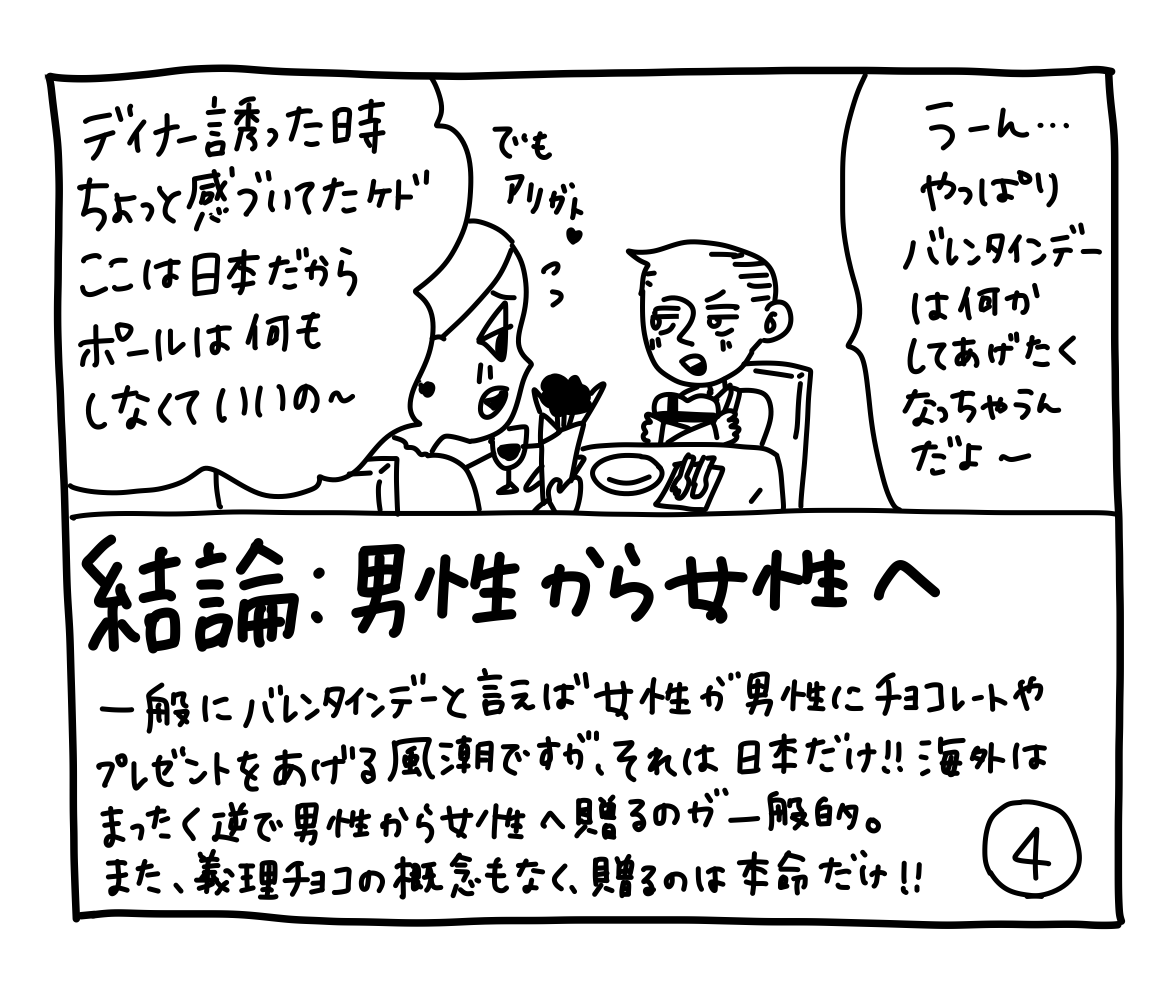 うーん…
やっぱり
バレンタインデー
は何か
してあげたく
なっちゃうん
だよ〜
でも
アリガト
♥
ディナー誘った時
ちょっと感づいてたケド
ここは日本だから
ポールは何も
しなくていいの〜
結論:男性から女性へ
一般にバレンタインデーと言えば女性が男性にチョコレートや
プレゼントをあげる風潮ですが、それは日本だけ!!海外は
まったく逆で男性から女性へ贈るのが一般的。
また、義理チョコの概念もなく、贈るのは本命だけ!!
4